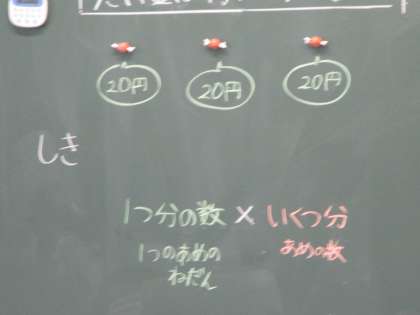 20円 20円 20円
しき
1つ分の数 × いくつ分
1つのあめの あめの数
ねだん